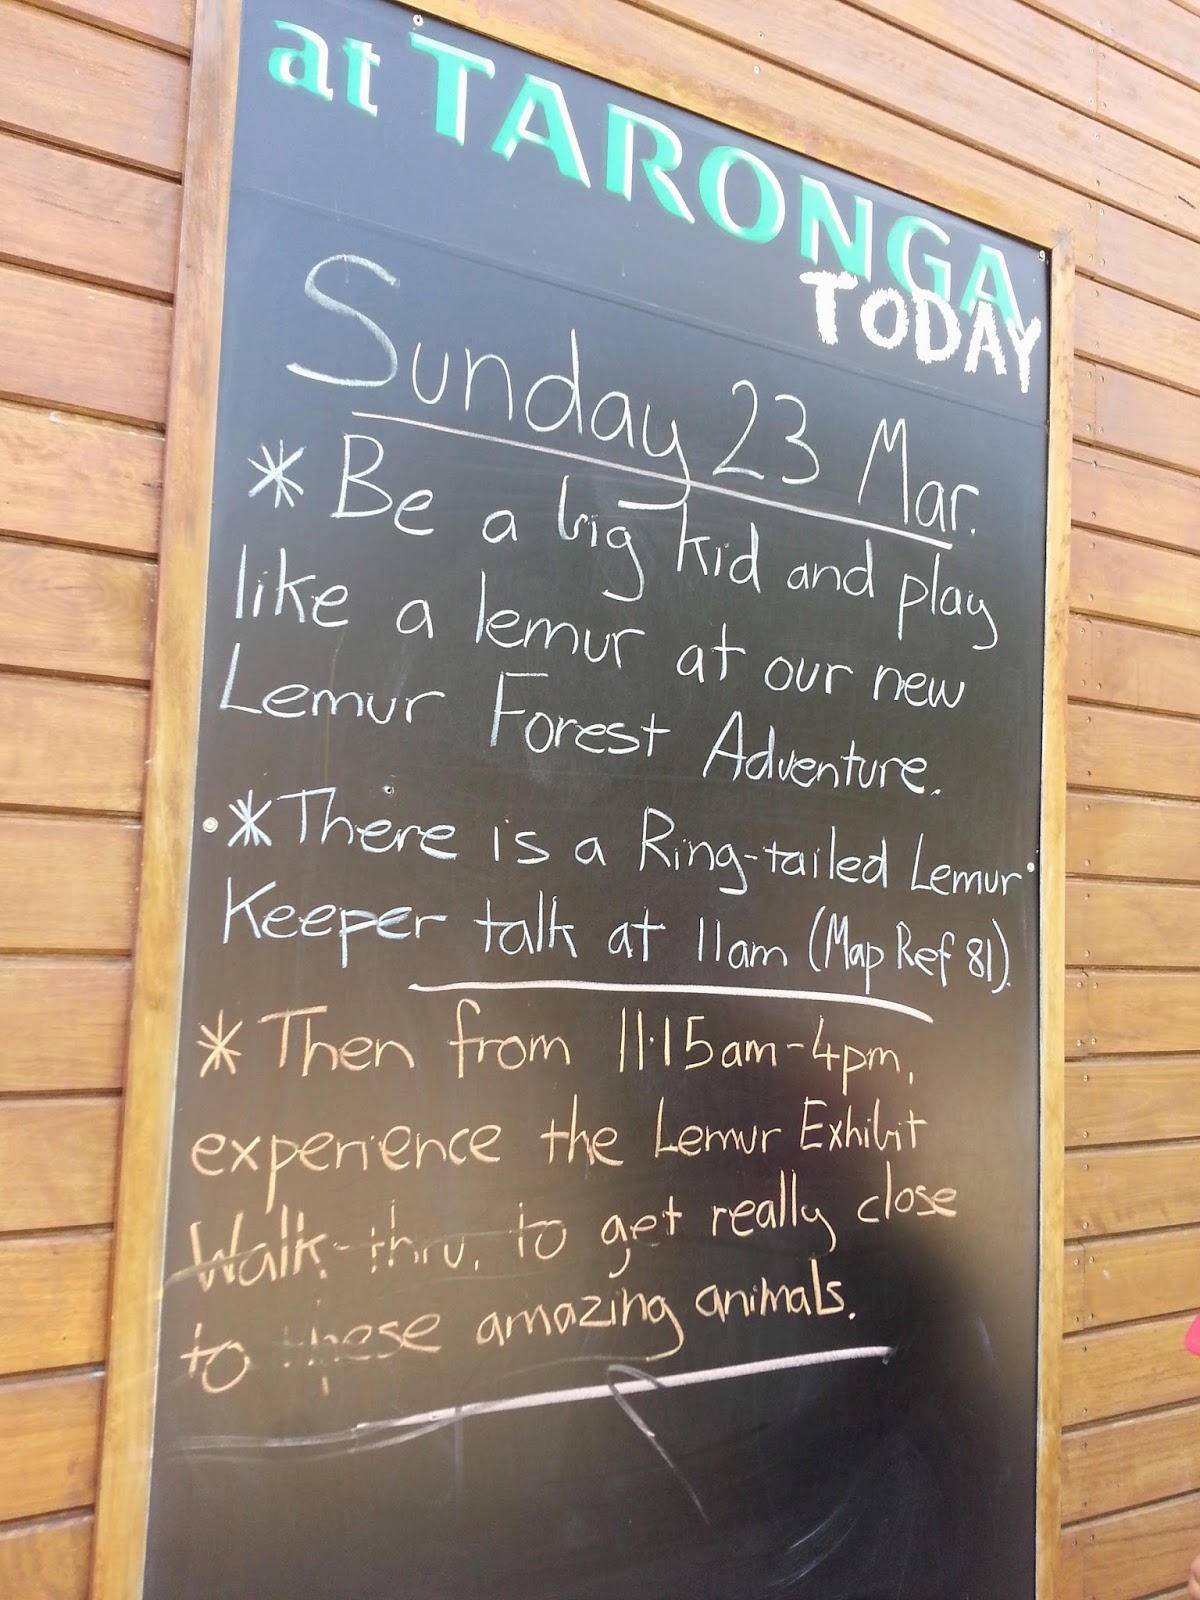 at TARONGA
TODAY
Sunday 23 Mar.
* Be a big kid and play
like a lemur at our new
Lemur Forest Adventure.
* There is a Ring-tailed Lemur
Keeper talk at 11am (Map Ref 81).
* Then from 11·15am-4pm,
experience the Lemur Exhibit
Walk-thru, to get really close
to these amazing animals.